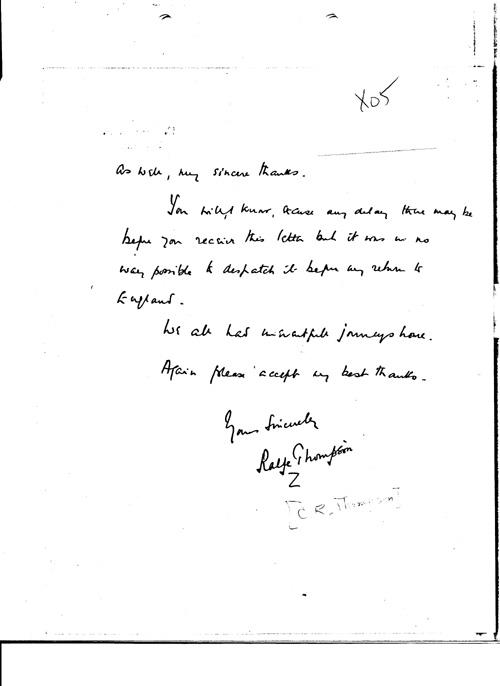 X05
as well, my sincere thanks.
You will, I know, excuse any delay there may be
before you receive this letter but it was in no
way possible to despatch it before my return to
England.
We all had uneventful journeys home.
Again please accept my best thanks.
Yours Sincerely
Ralph Thompson
[C R. Thompson]